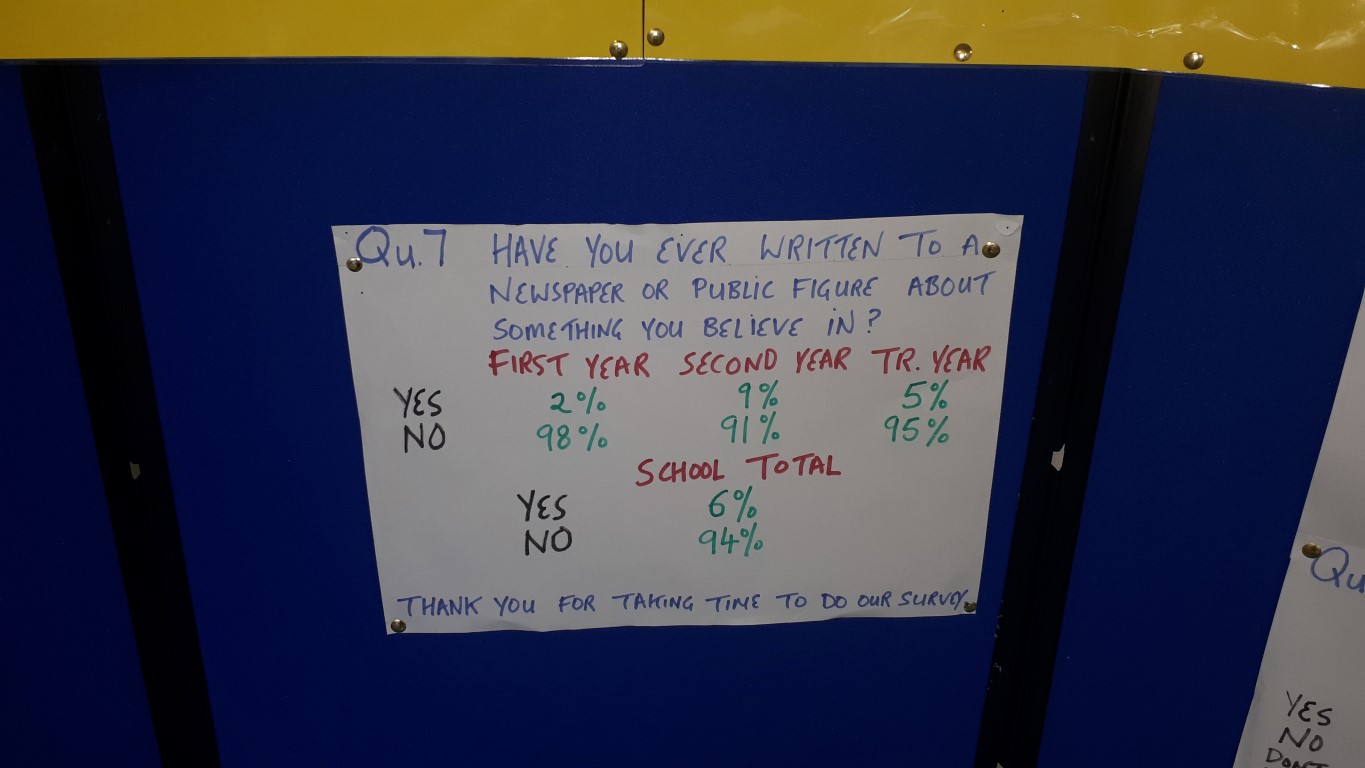 Qu.7 HAVE YOU EVER WRITTEN TO A
NEWSPAPER OR PUBLIC FIGURE ABOUT
SOMETHING YOU BELIEVE IN?
FIRST YEAR SECOND YEAR TR. YEAR
YES 2% 9% 5%
NO 98% 91% 95%
SCHOOL TOTAL
YES 6%
NO 94%
THANK YOU FOR TAKING TIME TO DO OUR SURVEY
Qu
YES
NO